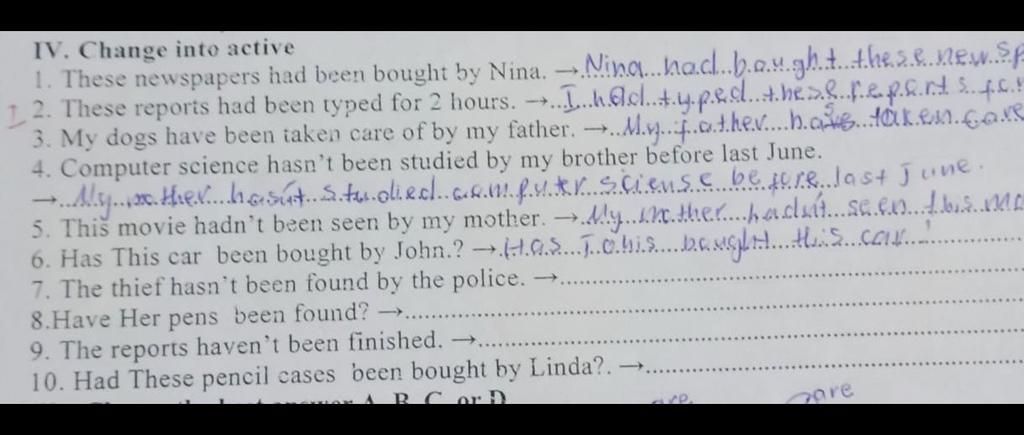 IV. Change into active
1. These newspapers had been bought by Nina. → Nina had bought these newsp
2. These reports had been typed for 2 hours. → I had typed these reports for
3. My dogs have been taken care of by my father. → My father has taken care
4. Computer science hasn't been studied by my brother before last June.
→ My hasn't studied computer sciense before last June.
5. This movie hadn't been seen by my mother. → My mother hadn't seen this mo
6. Has This car been bought by John.? → Has bought this car
7. The thief hasn't been found by the police. →
8.Have Her pens been found? →
9. The reports haven't been finished. →
10. Had These pencil cases been bought by Linda?. →
A B C or D
are